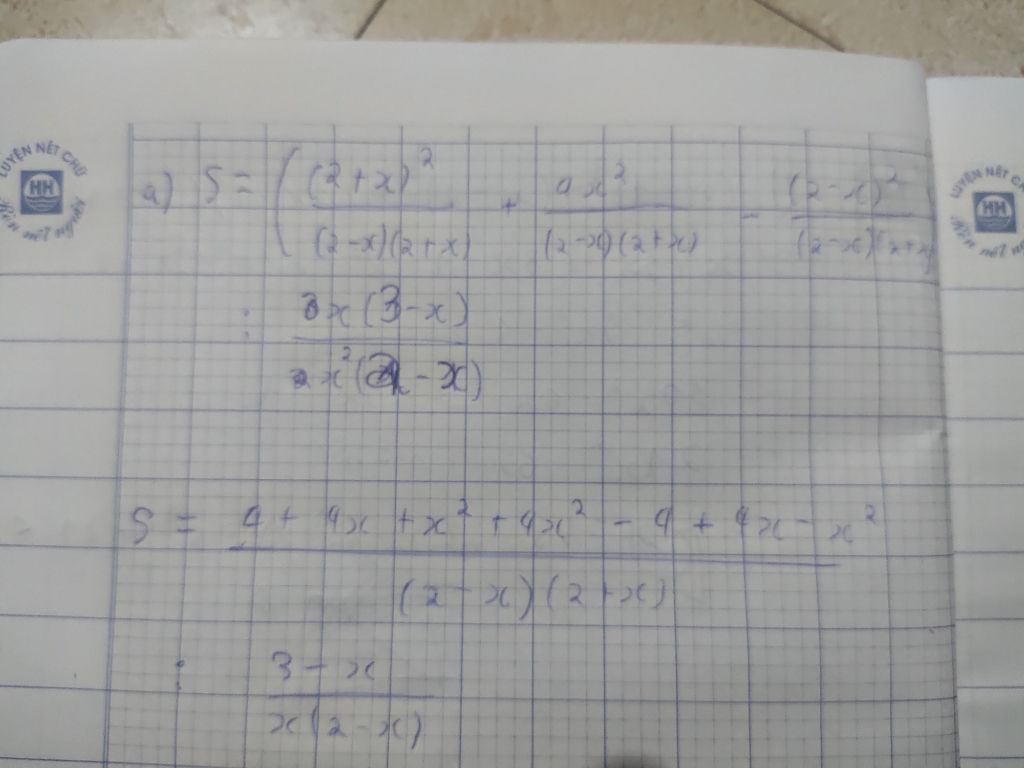 LUYỆN NÉT CHỮ
HH
a) S = ( (2+x)² / (2-x)(2+x) + 4x² / (2-x)(2+x) - (2-x)² / (2-x)(2+x)
: x(3-x) / x²(2-x)
S = 4 + 4x + x² + 4x² - 4 + 4x - x² / (2-x)(2+x)
: 3-x / x(2-x)
LUYỆN NÉT
HH